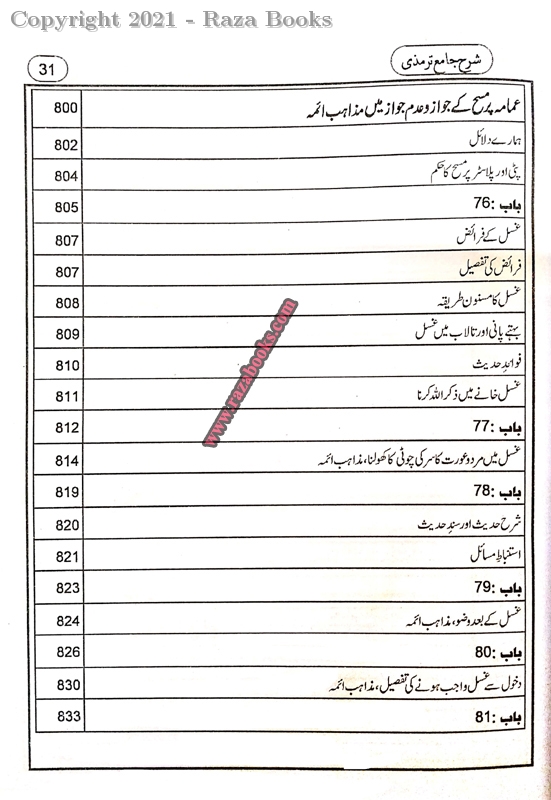 Copyright 2021 - Raza Books
شرح جامع ترمذی
31
عمامہ پر مسح کے جواز و عدم جواز میں مذاہب ائمہ 800
ہمارے دلائل 802
پٹی اور پلاسٹر پر مسح کا حکم 804
باب :76 805
غسل کے فرائض 807
فرائض کی تفصیل 807
غسل کا مسنون طریقہ 808
بہتے پانی اور تالاب میں غسل 809
فوائدِ حدیث 810
غسل خانے میں ذکر اللہ کرنا 811
باب :77 812
غسل میں مرد و عورت کا سر کی چوٹی کا کھولنا، مذاہب ائمہ 814
باب :78 819
شرح حدیث اور سندِ حدیث 820
استنباطِ مسائل 821
باب :79 823
غسل کے بعد وضو، مذاہب ائمہ 824
باب :80 826
دخول سے غسل واجب ہونے کی تفصیل، مذاہب ائمہ 830
باب :81 833
www.razabooks.com